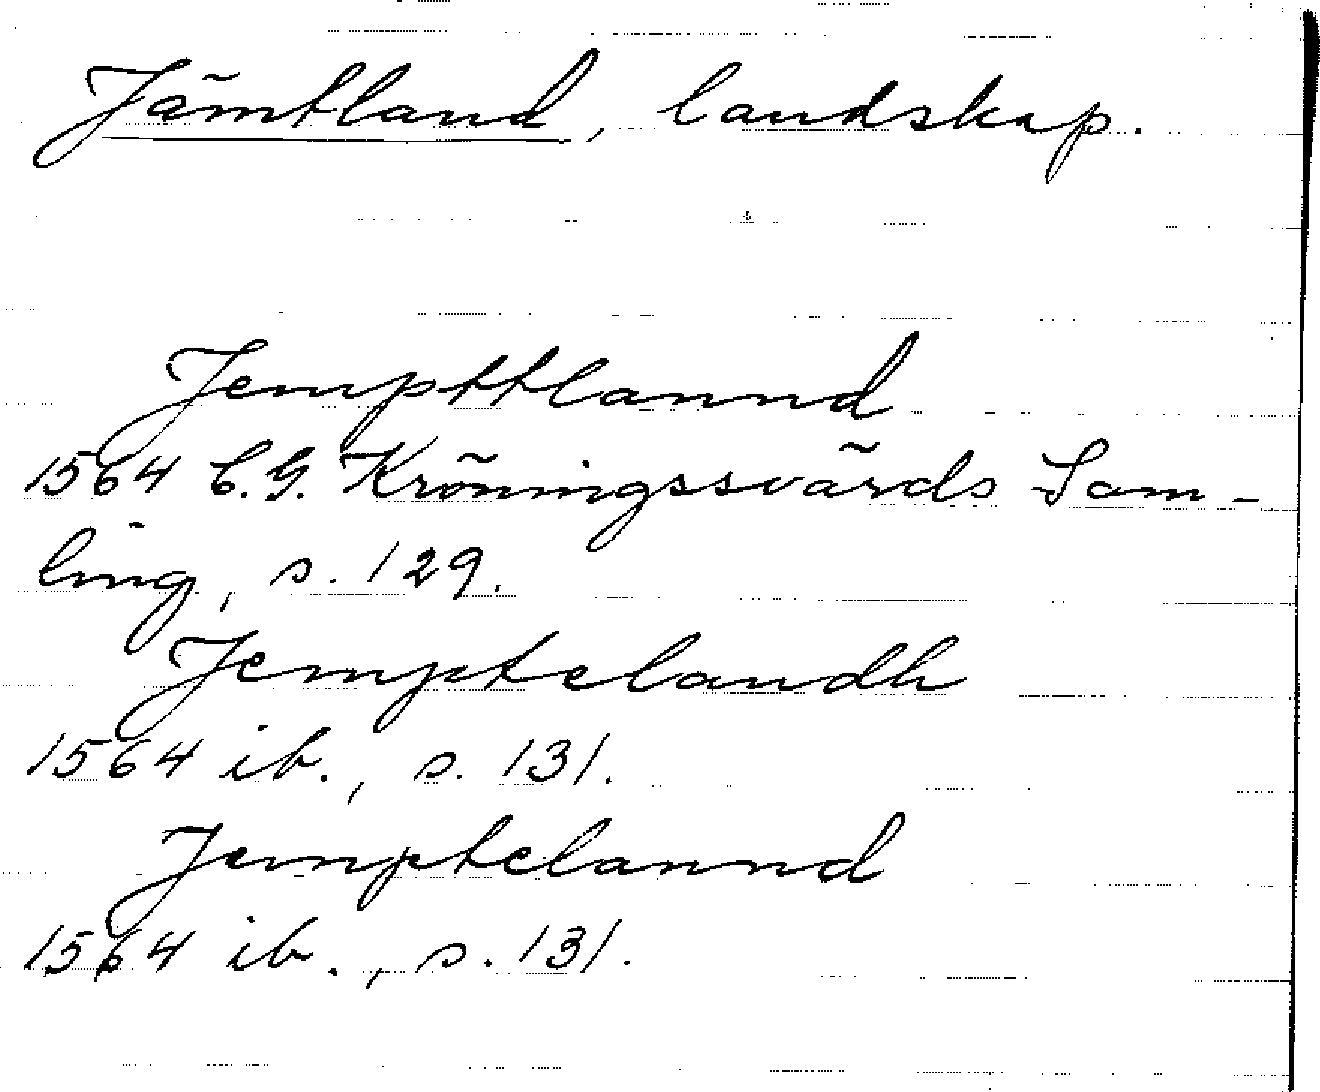 Jämtland, landskap.
Jempttlannd
1564 C.G. Kröningssvärds Sam-
ling, s. 129.
Jemptelandh
1564 ib., s. 131.
Jemptelannd
1564 ib., s. 131.